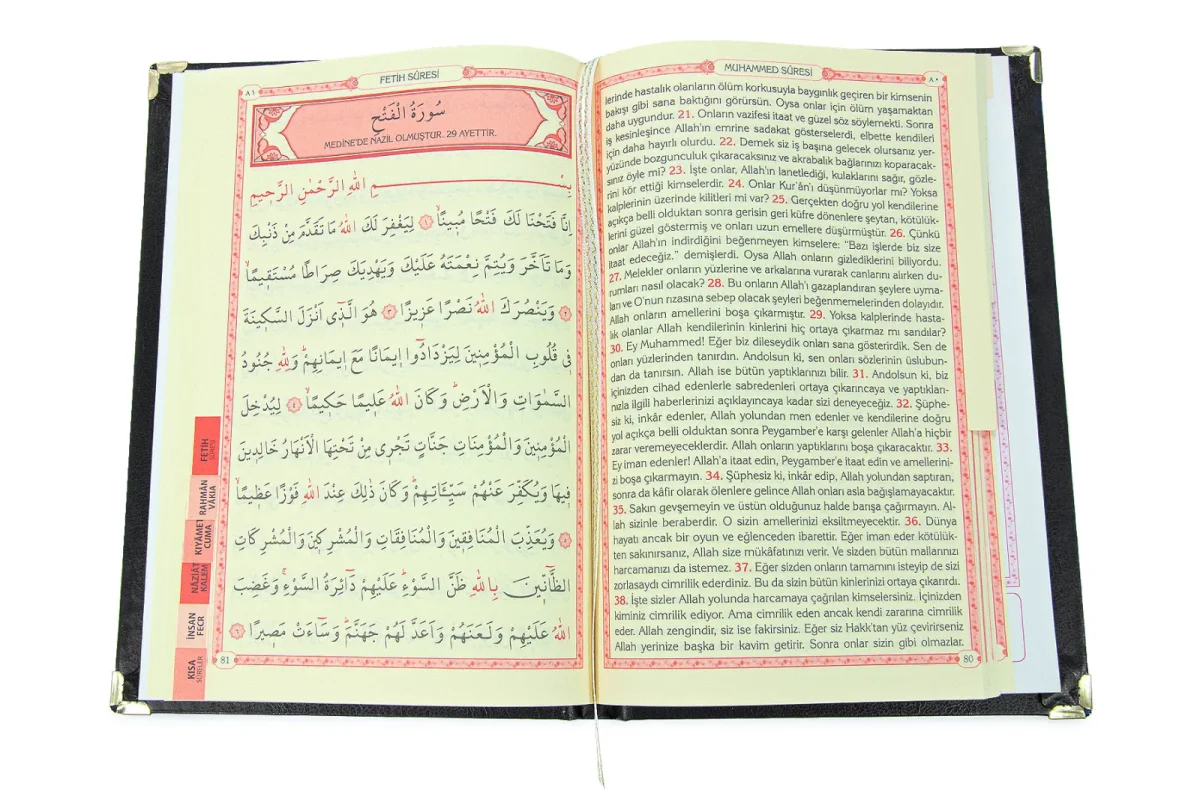 MUHAMMED SÛRESİ
٨٠
lerinde hastalık olanların ölüm korkusuyla baygınlık geçiren bir kimsenin
bakışı gibi sana baktığını görürsün. Oysa onlar için ölüm yaşamaktan
daha uygundur. 21. Onların vazifesi itaat ve güzel söz söylemekti. Sonra
iş kesinleşince Allah'ın emrine sadakat gösterselerdi, elbette kendileri
için daha hayırlı olurdu. 22. Demek siz iş başına gelecek olursanız yer-
yüzünde bozgunculuk çıkaracaksınız ve akrabalık bağlarınızı koparacak-
sınız öyle mi? 23. İşte onlar, Allah'ın lanetlediği, kulaklarını sağır, gözle-
rini kör ettiği kimselerdir. 24. Onlar Kur'ân'ı düşünmüyorlar mı? Yoksa
kalplerinin üzerinde kilitleri mi var? 25. Gerçekten doğru yol kendilerine
açıkça belli olduktan sonra gerisin geri küfre dönenlere şeytan, kötülük-
lerini güzel göstermiş ve onları uzun emellere düşürmüştür. 26. Çünkü
onlar Allah'ın indirdiğini beğenmeyen kimselere: "Bazı işlerde biz size
itaat edeceğiz." demişlerdi. Oysa Allah onların gizlediklerini biliyordu.
27. Melekler onların yüzlerine ve arkalarına vurarak canlarını alırken du-
rumları nasıl olacak? 28. Bu onların Allah'ı gazaplandıran şeylere uyma-
ları ve O'nun rızasına sebep olacak şeyleri beğenmemelerinden dolayıdır.
Allah onların amellerini boşa çıkarmıştır. 29. Yoksa kalplerinde hasta-
lık olanlar Allah kendilerinin kinlerini hiç ortaya çıkarmaz mı sandılar?
30. Ey Muhammed! Eğer biz dileseydik onları sana gösterirdik. Sen de
onları yüzlerinden tanırdın. Andolsun ki, sen onları sözlerinin üslubun-
dan da tanırsın. Allah ise bütün yaptıklarınızı bilir. 31. Andolsun ki, biz
içinizden cihad edenlerle sabredenleri ortaya çıkarıncaya ve yaptıkları-
nızla ilgili haberlerinizi açıklayıncaya kadar sizi deneyeceğiz. 32. Şüphe-
siz ki, inkâr edenler, Allah yolundan men edenler ve kendilerine doğru
yol açıkça belli olduktan sonra Peygamber'e karşı gelenler Allah'a hiçbir
zarar veremeyeceklerdir. Allah onların yaptıklarını boşa çıkaracaktır. 33.
Ey iman edenler! Allah'a itaat edin, Peygamber'e itaat edin ve amellerini-
zi boşa çıkarmayın. 34. Şüphesiz ki, inkâr edip, Allah yolundan saptıran,
sonra da kâfir olarak ölenlere gelince Allah onları asla bağışlamayacaktır.
35. Sakın gevşemeyin ve üstün olduğunuz halde barışa çağırmayın. Al-
lah sizinle beraberdir. O sizin amellerinizi eksiltmeyecektir. 36. Dünya
hayatı ancak bir oyun ve eğlenceden ibarettir. Eğer iman eder kötülük-
ten sakınırsanız, Allah size mükâfatınızı verir. Ve sizden bütün mallarınızı
harcamanızı da istemez. 37. Eğer sizden onların tamamını isteyip de sizi
zorlasaydı cimrilik ederdiniz. Bu da sizin bütün kinlerinizi ortaya çıkarırdı.
38. İşte sizler Allah yolunda harcamaya çağrılan kimselersiniz. İçinizden
kiminiz cimrilik ediyor. Ama cimrilik eden ancak kendi zararına cimrilik
eder. Allah zengindir, siz ise fakirsiniz. Eğer siz Hakk'tan yüz çevirirseniz
Allah yerinize başka bir kavim getirir. Sonra onlar sizin gibi olmazlar.
80
FETİH SÛRESİ
٨١
سُورَةُ الْفَتْحِ
MEDİNE'DE NAZİL OLMUŞTUR. 29 AYETTİR.
بِسْمِ اللهِ الرَّحْمٰنِ الرَّحٖيمِ
اِنَّا فَتَحْنَا لَكَ فَتْحًا مُبٖينًاۙ ﴿١﴾ لِيَغْفِرَ لَكَ اللهُ مَا تَقَدَّمَ مِنْ ذَنْبِكَ
وَمَا تَاَخَّرَ وَيُتِمَّ نِعْمَتَهُ عَلَيْكَ وَيَهْدِيَكَ صِرَاطًا مُسْتَقٖيمًاۙ
﴿٢﴾ وَيَنْصُرَكَ اللهُ نَصْرًا عَزٖيزًا ﴿٣﴾ هُوَ الَّذٖٓى اَنْزَلَ السَّكٖينَةَ
فٖى قُلُوبِ الْمُؤْمِنٖينَ لِيَزْدَادُٓوا اٖيمَانًا مَعَ اٖيمَانِهِمْۜ وَلِلّٰهِ جُنُودُ
السَّمٰوَاتِ وَالْاَرْضِۜ وَكَانَ اللهُ عَلٖيمًا حَكٖيمًاۙ ﴿٤﴾ لِيُدْخِلَ
الْمُؤْمِنٖينَ وَالْمُؤْمِنَاتِ جَنَّاتٍ تَجْرٖى مِنْ تَحْتِهَا الْاَنْهَارُ خَالِدٖينَ
فٖيهَا وَيُكَفِّرَ عَنْهُمْ سَيِّـَٔاتِهِمْۜ وَكَانَ ذٰلِكَ عِنْدَ اللهِ فَوْزًا عَظٖيمًاۙ
﴿٥﴾ وَيُعَذِّبَ الْمُنَافِقٖينَ وَالْمُنَافِقَاتِ وَالْمُشْرِكٖينَ وَالْمُشْرِكَاتِ
الظَّٓانّٖينَ بِاللهِ ظَنَّ السَّوْءِۜ عَلَيْهِمْ دَٓائِرَةُ السَّوْءِۚ وَغَضِبَ
اللهُ عَلَيْهِمْ وَلَعَنَهُمْ وَاَعَدَّ لَهُمْ جَهَنَّمَۜ وَسَٓاءَتْ مَصٖيرًا ﴿٦﴾
81
FETİH
SÛRESİ
RAHMÂN
VÂKIA
KIYÂMET
CUMA
NÂZİÂT
KALEM
İNSAN
FECR
KISA
SÛRELER